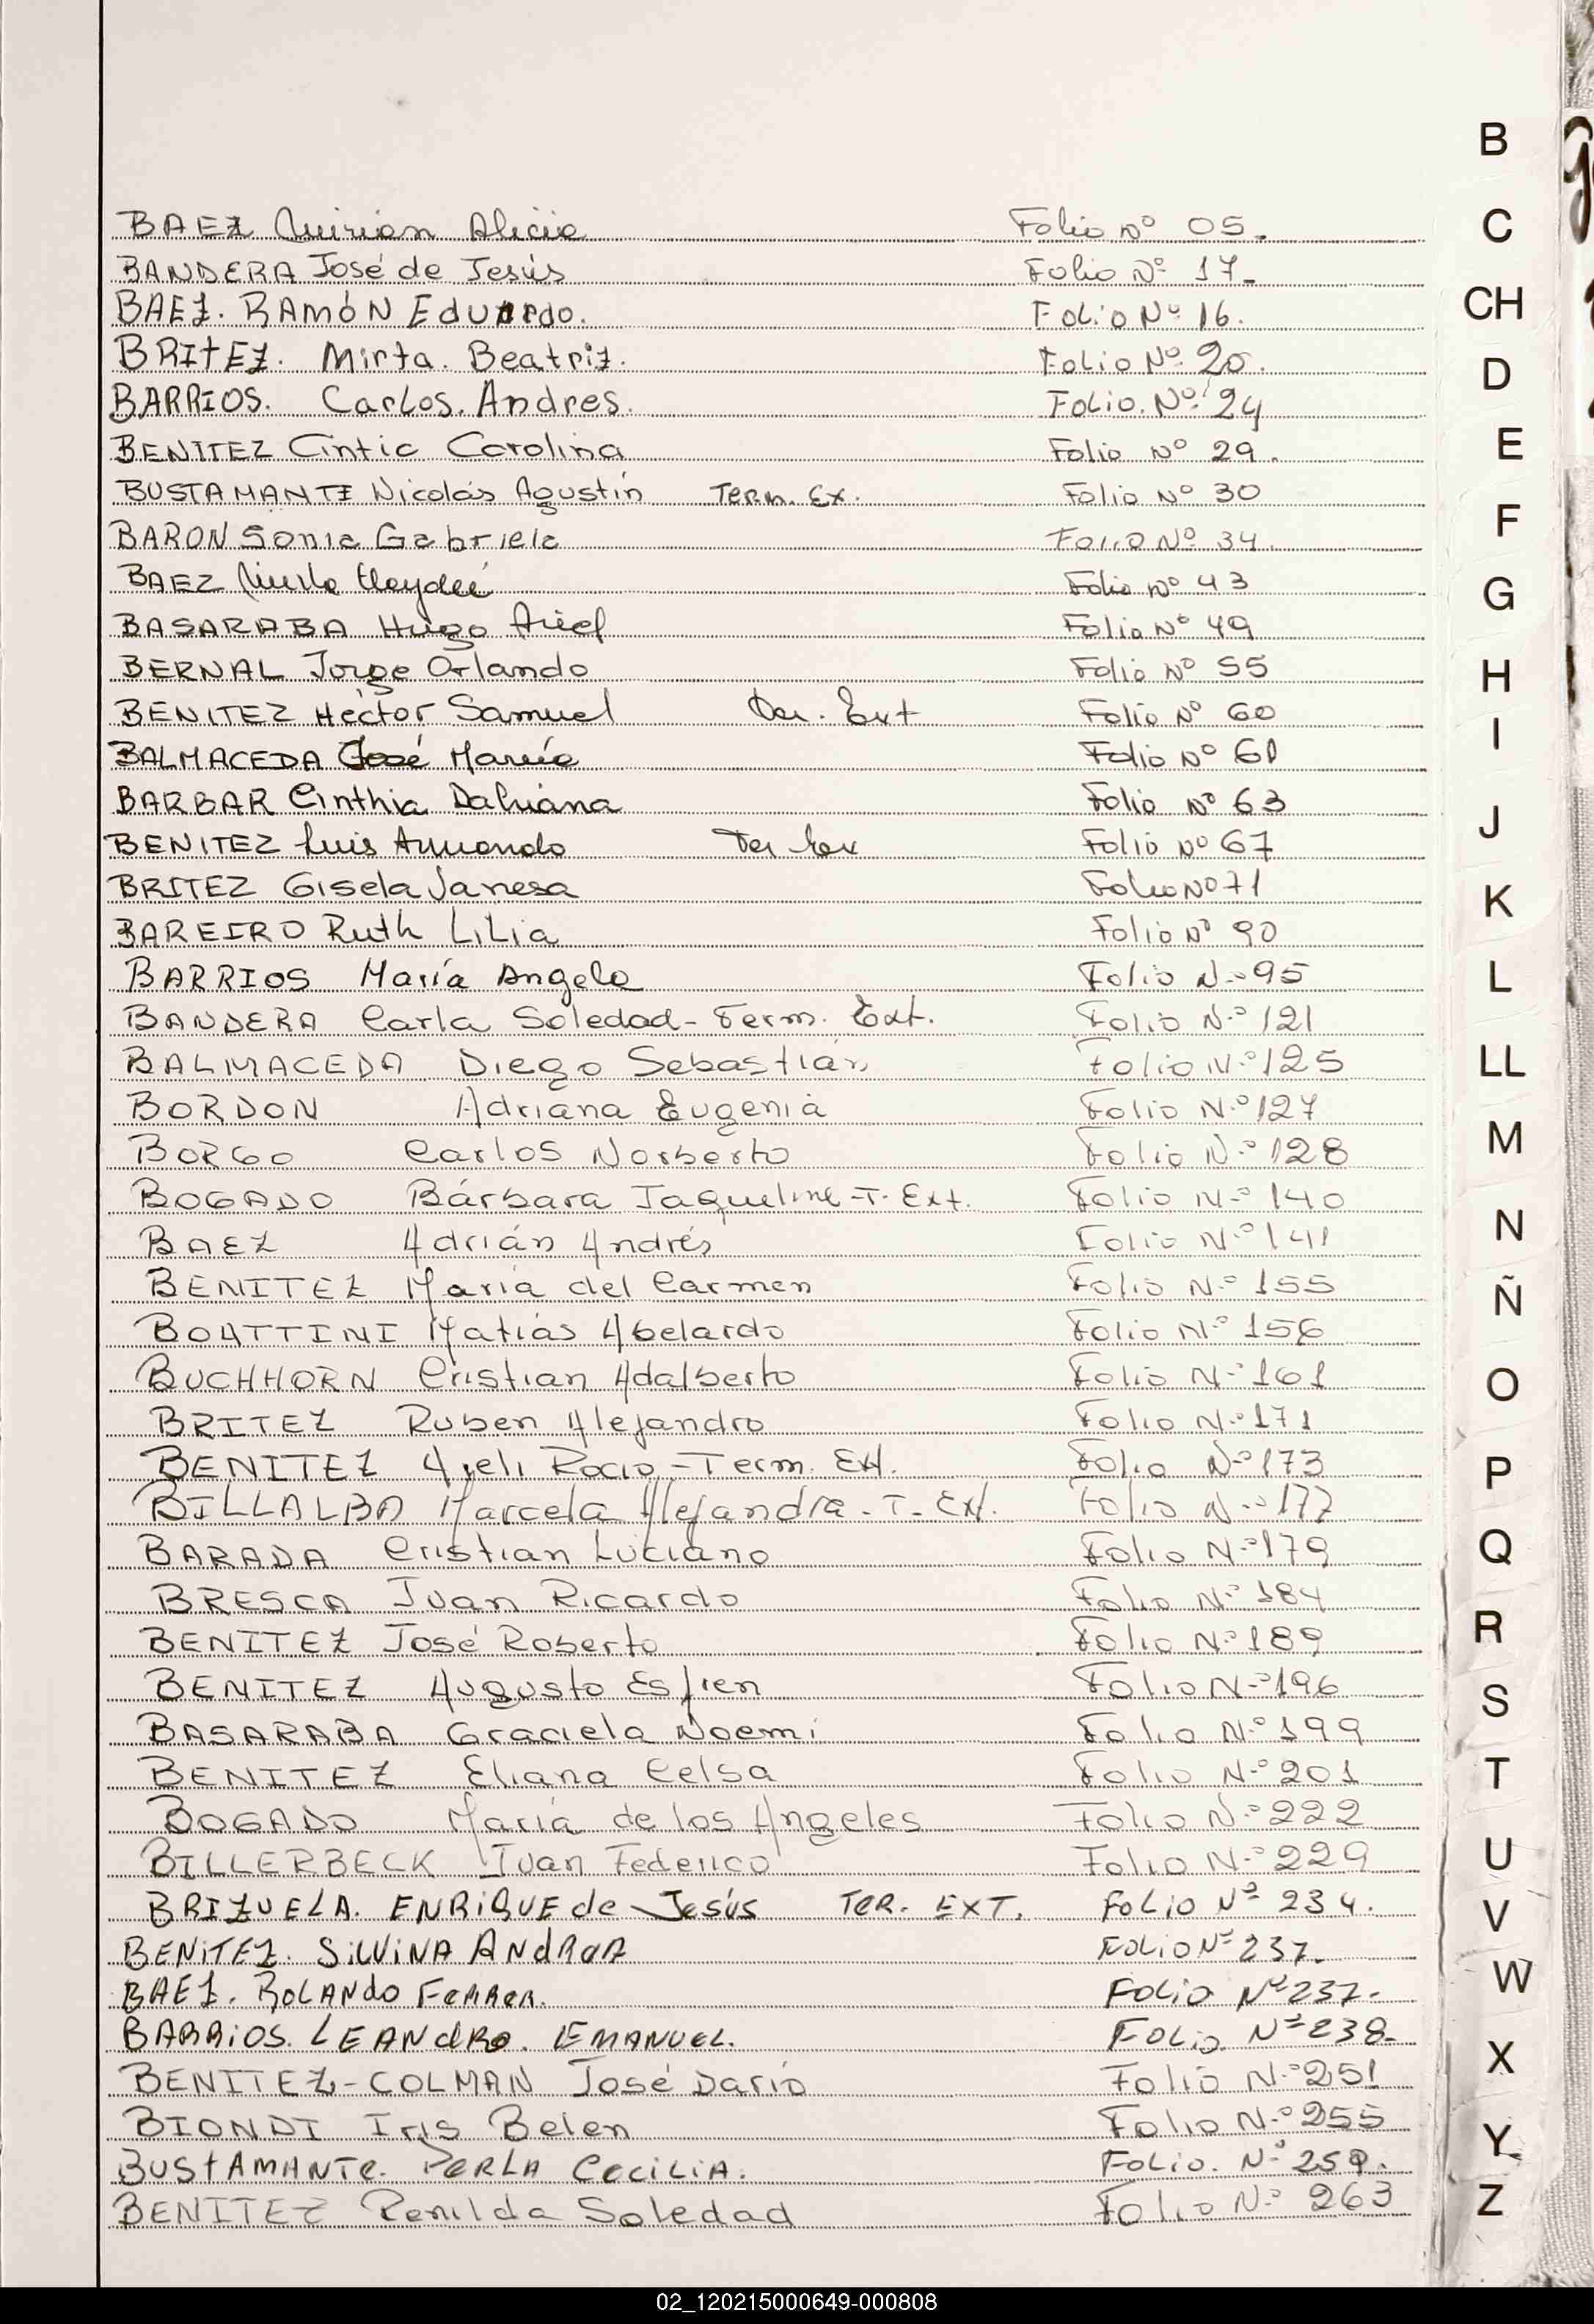 B
C
CH
D
E
F
G
H
I
J
K
L
LL
M
N
Ñ
O
P
Q
R
S
T
U
V
W
X
Y
Z
BAEZ Mirian Alicia Folio Nº 05.
BANDERA José de Jesús Folio Nº 17.
BAEZ. RAMÓN Eduardo. Folio Nº 16.
BRITEZ. Mirta. Beatriz. Folio Nº 20.
BARRIOS. Carlos. Andres. Folio. Nº 24
BENITEZ Cintia Carolina Folio Nº 29.
BUSTAMANTE Nicolás Agustín Term. Ex. Folio Nº 30
BARON Sonia Gabriela Folio Nº 34.
BAEZ Haydeé Folio Nº 43
BASARABA Hugo Ariel Folio Nº 49
BERNAL Jorge Orlando Folio Nº 55
BENITEZ Héctor Samuel Ter. Ext Folio Nº 60
BALMACEDA José María Folio Nº 61
BARBAR Cinthia Dahiana Folio Nº 63
BENITEZ Luis Armando Ter Ex Folio Nº 67
BRITEZ Gisela Vanesa Folio Nº 71
BAREIRO Ruth Lilia Folio Nº 90
BARRIOS María Angela Folio N.º 95
BANDERA Carla Soledad - Term. Ext. Folio N.º 121
BALMACEDA Diego Sebastián Folio N.º 125
BORDON Adriana Eugenia Folio N.º 127
BORGO Carlos Norberto Folio N.º 128
BOGADO Bárbara Jaqueline - T. Ext. Folio N.º 140
BAEZ Adrián Andrés Folio N.º 141
BENITEZ María del Carmen Folio N.º 155
BOATTINI Matías Abelardo Folio N.º 156
BUCHHORN Cristian Adalberto Folio N.º 161
BRITEZ Ruben Alejandro Folio N.º 171
BENITEZ Rocio - Term. Ext. Folio N.º 173
BILLALBA Marcela Alejandra - T. Ext. Folio N.º 177
BARADA Cristian Luciano Folio N.º 179
BRESCA Juan Ricardo Folio N.º 184
BENITEZ José Roberto Folio N.º 189
BENITEZ Augusto Folio N.º 196
BASARABA Graciela Noemi Folio N.º 199
BENITEZ Eliana Celsa Folio N.º 201
BOGADO María de los Angeles Folio N.º 222
BILLERBECK Juan Federico Folio N.º 229
BRIZUELA. ENRIQUE de Jesús TER. EXT. FOLIO Nº 234.
BENITEZ. SILVINA ANDREA FOLIO Nº 237.
BAEZ. ROLANDO FERRER. FOLIO Nº 237.
BARRIOS. LEANDRO. EMANUEL. FOLIO Nº 238.
BENITEZ-COLMAN José Darío Folio N.º 251
BIONDI Iris Belen Folio N.º 255
BUSTAMANTE. PERLA CECILIA. FOLIO. Nº 259.
BENITEZ Soledad Folio N.º 263
02_120215000649-000808